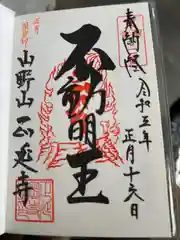 奉拝
令和五年
正月十六日
不動明王
正月
山野山 正延寺